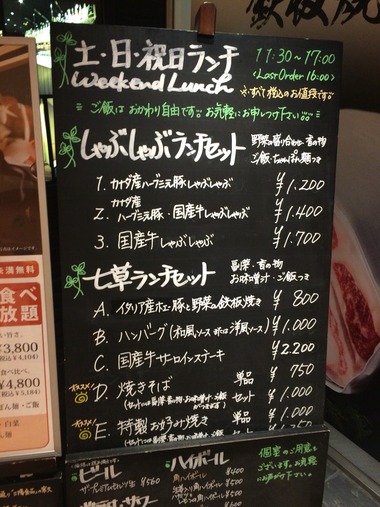 土・日・祝日ランチ
Weekend Lunch
11:30~17:00
<Last Order 16:00>
※すべて税込のお値段です
ご飯はおかわり自由です。お気軽にお申しつけ下さい
しゃぶしゃぶランチセット
野菜の盛り合わせ・香の物
1. カナダ産ハーブ三元豚しゃぶしゃぶ ¥1.200
2. カナダ産ハーブ三元豚・国産牛しゃぶしゃぶ ¥1.400
3. 国産牛しゃぶしゃぶ ¥1.700
七草ランチセット
副菜・香の物
お味噌汁・ご飯つき
A. イタリア産ホエー豚と野菜の鉄板焼き ¥800
B. ハンバーグ(和風ソースまたは洋風ソース) ¥1.000
C. 国産牛サーロインステーキ ¥2.200
オススメ! D. 焼きそば 単品 ¥750
セット ¥1.000
オススメ! E. 特製お好み焼き 単品
セット
個室のご用意も
ございます。お気軽
にお声がけ下さい。
ビール
¥560
ハイボール
角ハイボール ¥400
¥450
食べ
放題
¥3,800
¥4,104)
¥4,800
¥5,184)